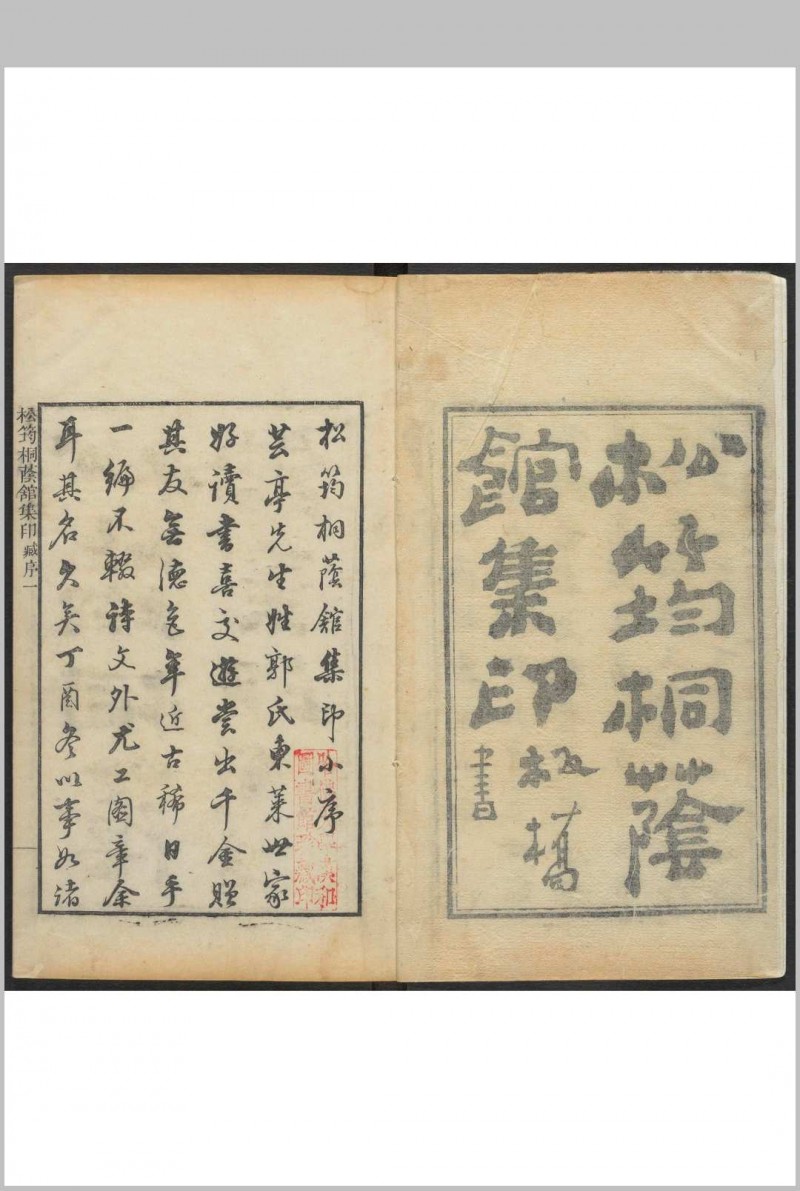 松筠桐蔭
館集印
板橋
書
松筠桐蔭館集印小序
芸亭先生姓郭氏東萊世家
好讀書喜交遊嘗出千金贈
其友無德色年近古稀日手
一編不輟詩文外尤工圖章余
耳其名久矣丁酉冬以事如諸
松筠桐蔭館集印 臧序 一